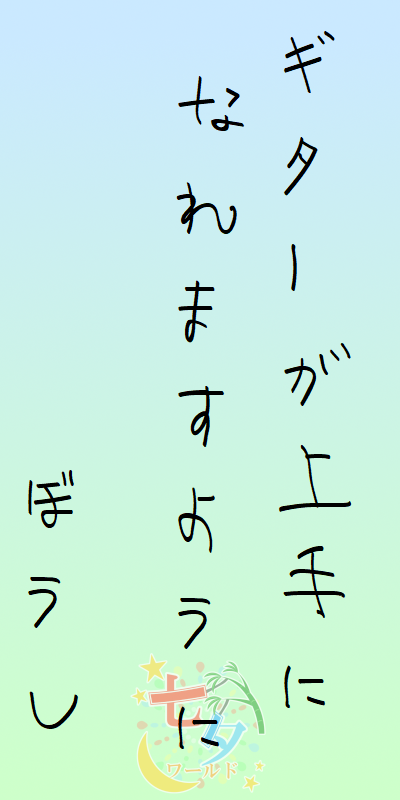 ギターが上手に
なれますように
ぼうし
七夕
ワールド